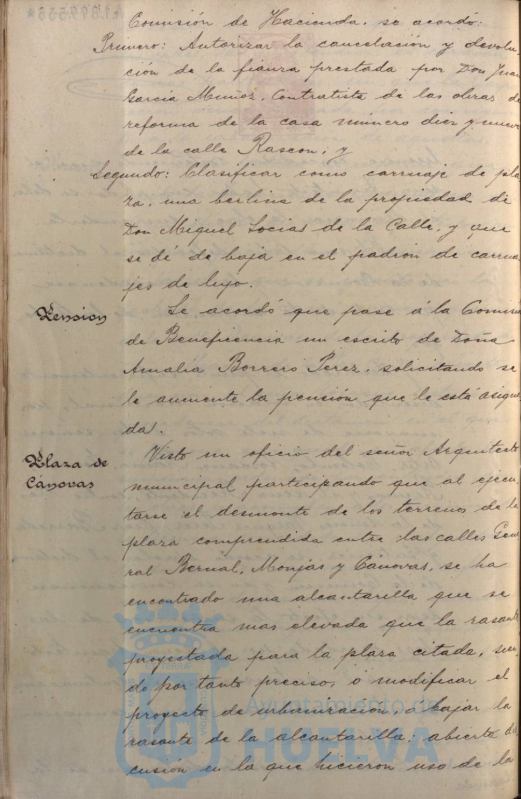 Comisión de Hacienda, se acordó:
Primero: Autorizar la cancelación y devolu
ción de la fianza prestada por Don Juan
García Muñoz, Contratista de las obras de
reforma de la casa número diez y nueve
de la calle Rascon; y
Segundo: Clasificar como carruaje de pla
za, una berlina de la propiedad de
Don Miguel Socias de la Calle, y que
se dé de baja en el padron de carrua
jes de lujo.
Pension
Se acordó que pase á la Comisión
de Beneficencia un escrito de Doña
Amalia Borrero Perez, solicitando se
le aumente la pensión que le está asigna
da.
Plaza de
Cánovas
Visto un oficio del señor Arquitecto
municipal participando que al ejecu
tarse el desmonte de los terrenos de la
plaza comprendida entre las calles Gene
ral Bernal, Monjas y Cánovas, se ha
encontrado una alcantarilla que se
encuentra mas elevada que la rasante
proyectada para la plaza citada, sien
do por tanto preciso, o modificar el
proyecto de urbanización, o bajar la
rasante de la alcantarilla; abierta dis
cusión en la que hicieron uso de la
Ayuntamiento de
HUELVA